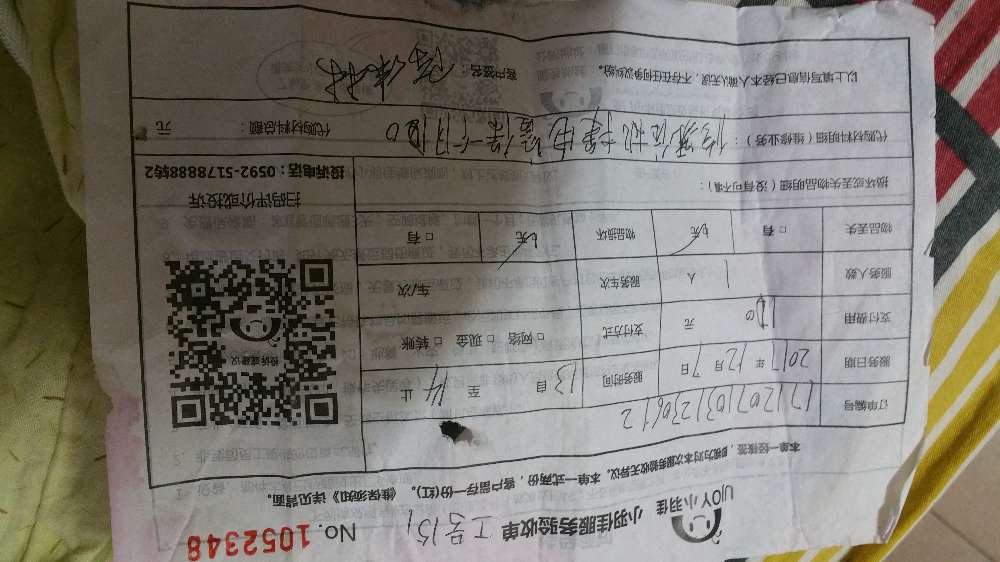 UJOY小羽佳 小羽佳服务验收单 工号151 No. 1052348
本单一经续签，即视为对本次服务验收无异议。本单一式两份，客户留存一份(红)。《维保须知》详见背面。
订单编号 1712071031230612
服务日期 2017年12月7日 服务时间 13自 至 14止
支付费用 120元 支付方式 □ 网络 □ 现金 □ 转账
服务人数 1人 服务车次 车/次
物品丢失 □ 有 无 物品损坏 □ 有 无
投诉或建议
扫码评价或投诉
投诉电话：0592-5178888转2
损坏或丢失物品明细（没有可不填）
代购材料明细（维修业务）： 修 洗衣机 电 保一个月120 代购材料总额： 元
以上填写信息已经本人确认无误，不存在任何争议纠纷。 客户签名：